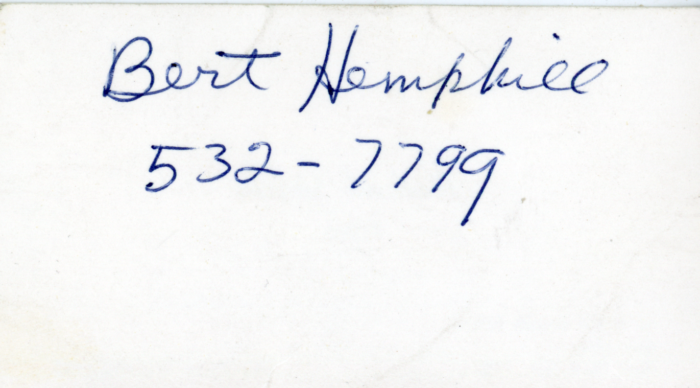 Bert Hemphill
532-7799